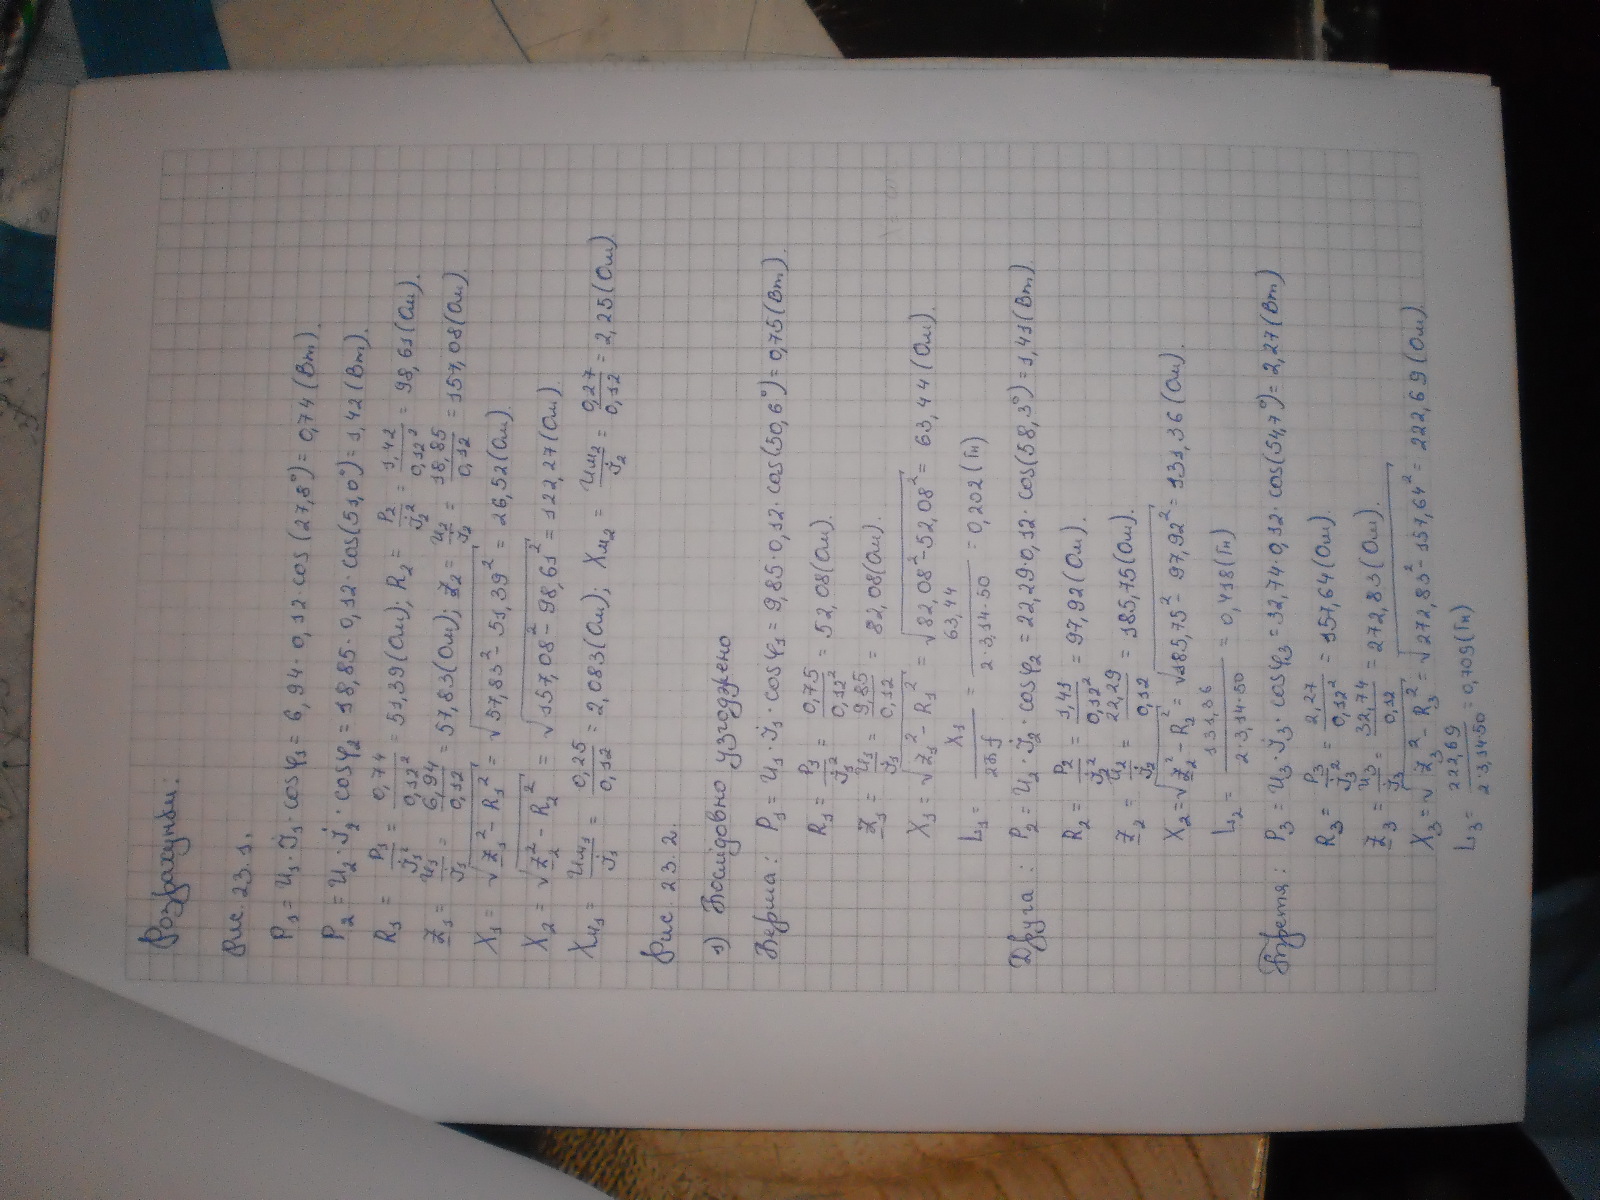 Розрахунки:
Рис. 23.1.
P₁ = U₁ · I₁ · cosφ₁ = 6,94 · 0,12 · cos(27,8°) = 0,74 (Вт).
P₂ = U₂ · I₂ · cosφ₂ = 18,85 · 0,12 · cos(51,0°) = 1,42 (Вт).
R₁ = P₁/I₁² = 0,74/0,12² = 51,39 (Ом); R₂ = P₂/I₂² = 1,42/0,12² = 98,61 (Ом).
Z₁ = U₁/I₁ = 6,94/0,12 = 57,83 (Ом); Z₂ = U₂/I₂ = 18,85/0,12 = 157,08 (Ом).
X₁ = √(Z₁² - R₁²) = √(57,83² - 51,39²) = 26,52 (Ом).
X₂ = √(Z₂² - R₂²) = √(157,08² - 98,61²) = 122,27 (Ом).
Xм₁ = Uм₁/I₁ = 0,25/0,12 = 2,083 (Ом); Xм₂ = Uм₂/I₂ = 0,27/0,12 = 2,25 (Ом).
Рис. 23.2.
1) Послідовно узгоджено
Перша: P₁ = U₁ · I₁ · cosφ₁ = 9,85 · 0,12 · cos(50,6°) = 0,75 (Вт).
R₁ = P₁/I₁² = 0,75/0,12² = 52,08 (Ом).
Z₁ = U₁/I₁ = 9,85/0,12 = 82,08 (Ом).
X₁ = √(Z₁² - R₁²) = √(82,08² - 52,08²) = 63,44 (Ом).
L₁ = X₁/2πf = 63,44/2·3,14·50 = 0,202 (Гн)
Друга: P₂ = U₂ · I₂ · cosφ₂ = 22,29 · 0,12 · cos(58,3°) = 1,41 (Вт).
R₂ = P₂/I₂² = 1,41/0,12² = 97,92 (Ом).
Z₂ = U₂/I₂ = 22,29/0,12 = 185,75 (Ом).
X₂ = √(Z₂² - R₂²) = √(185,75² - 97,92²) = 131,36 (Ом).
L₂ = 131,36/2·3,14·50 = 0,418 (Гн)
Третя: P₃ = U₃ · I₃ · cosφ₃ = 32,74 · 0,12 · cos(54,7°) = 2,27 (Вт)
R₃ = P₃/I₃² = 2,27/0,12² = 157,64 (Ом).
Z₃ = U₃/I₃ = 32,74/0,12 = 272,83 (Ом).
X₃ = √(Z₃² - R₃²) = √(272,83² - 157,64²) = 222,69 (Ом).
L₃ = 222,69/2·3,14·50 = 0,709 (Гн)